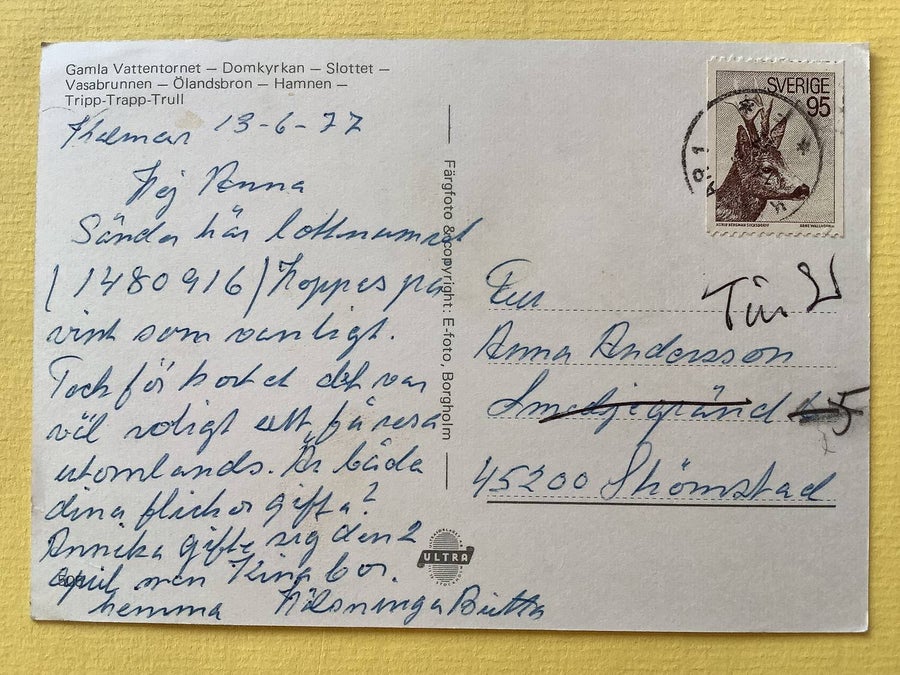 Gamla Vattentornet – Domkyrkan – Slottet –
Vasabrunnen – Ölandsbron – Hamnen –
Tripp-Trapp-Trull
Kalmar 13-6-77
Hej Anna
Sänder här lottnumret
(1480916) Hoppas på
vinst som vanligt.
Tack för kortet det var
väl roligt att få resa
utomlands. Är båda
dina flickor gifta?
Annika gifte sig den 2
april men King bor
hemma Hälsningar Britta
508
Färgfoto & copyright: E-foto, Borgholm
ULTRA
SVERIGE
95
Fru
Anna Andersson
Smedjegränd 5
45200 Strömstad